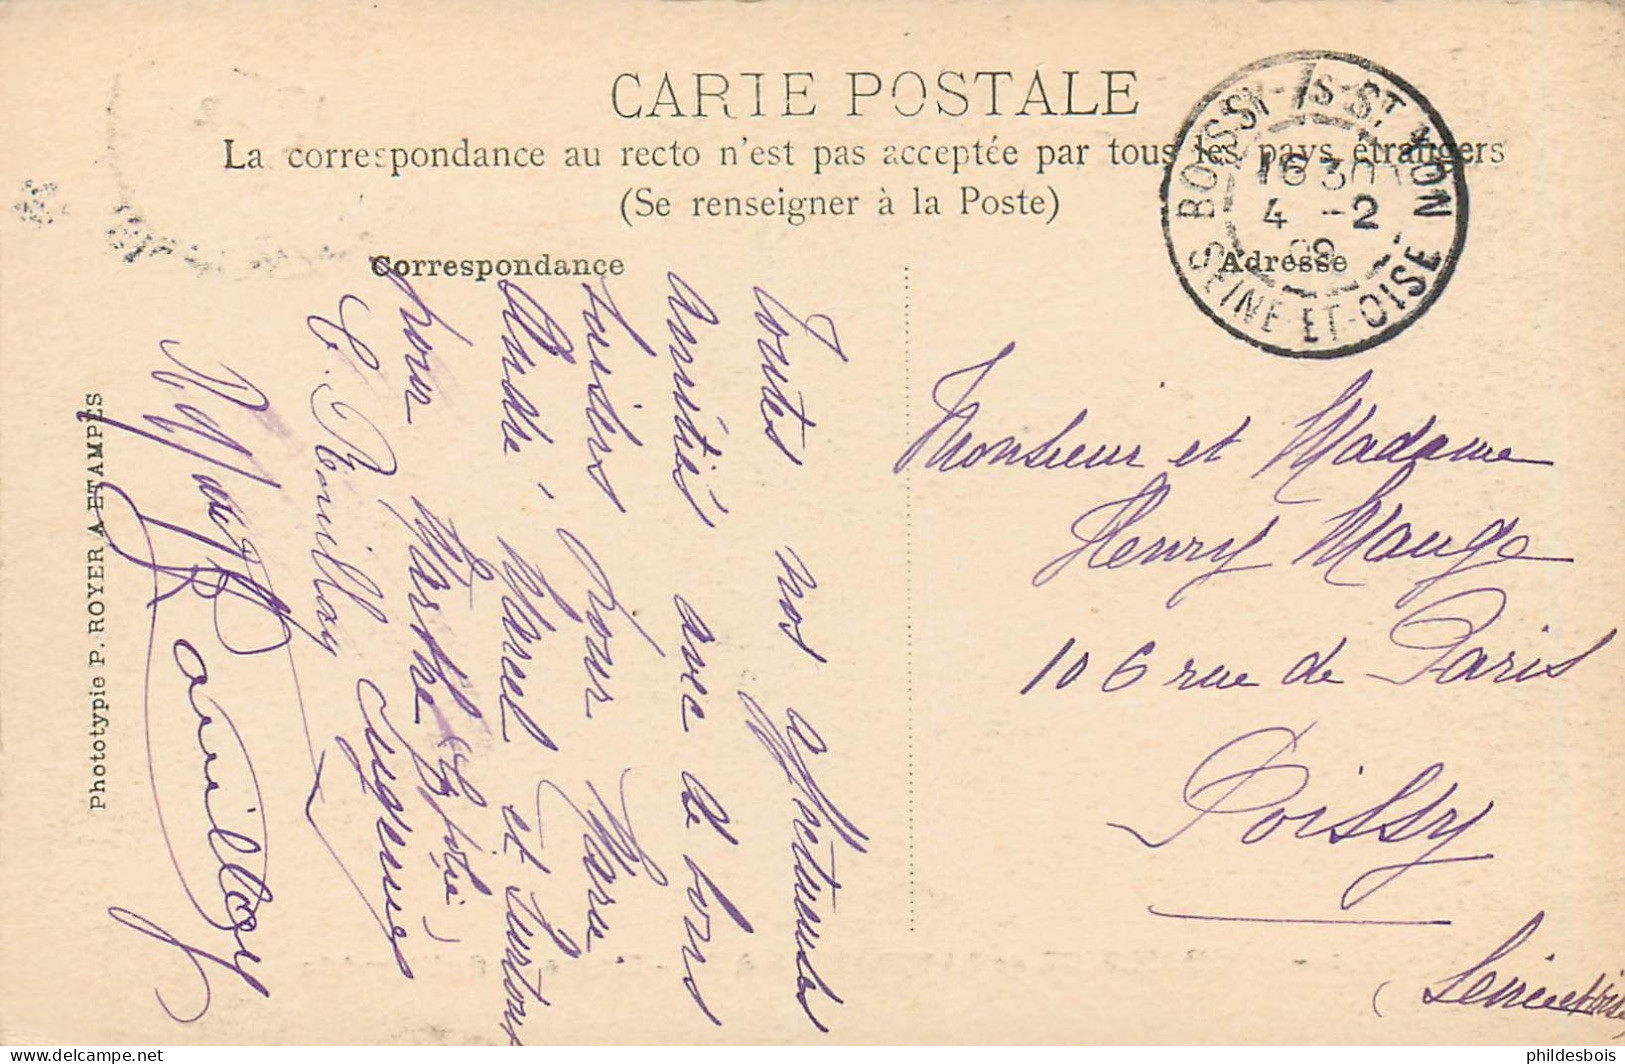 CARTE POSTALE
La correspondance au recto n'est pas acceptée par tous les pays étrangers
(Se renseigner à la Poste)
Correspondance
Adresse
BOISSY-Is-ST YON
16 30
4 -2
09
SEINE-ET-OISE
Toutes nos affectueuses
Amitiés avec de bons
baisers pour Marie
André, Marcel et surtout
pour Marthe
Eugénie
E. Rouillay
Rouillay
Monsieur et Madame
Henry Mauge
106 rue de Paris
Poissy
(Seine et Oise)
Phototypie P. ROYER A ETAMPES
phildesbois